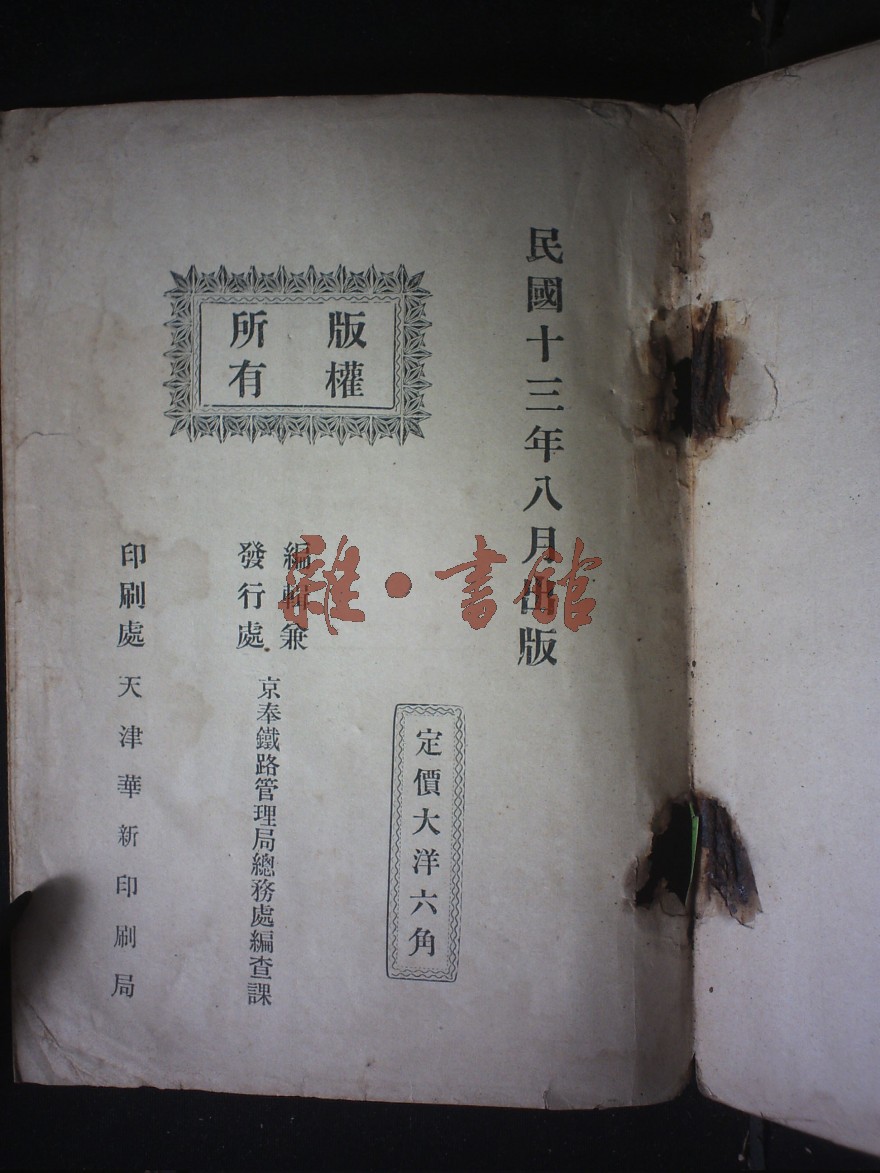 民國十三年八月出版
版權
所有
定價大洋六角
編輯兼
發行處
京奉鐵路管理局總務處編查課
印刷處 天津華新印刷局
雜·書館